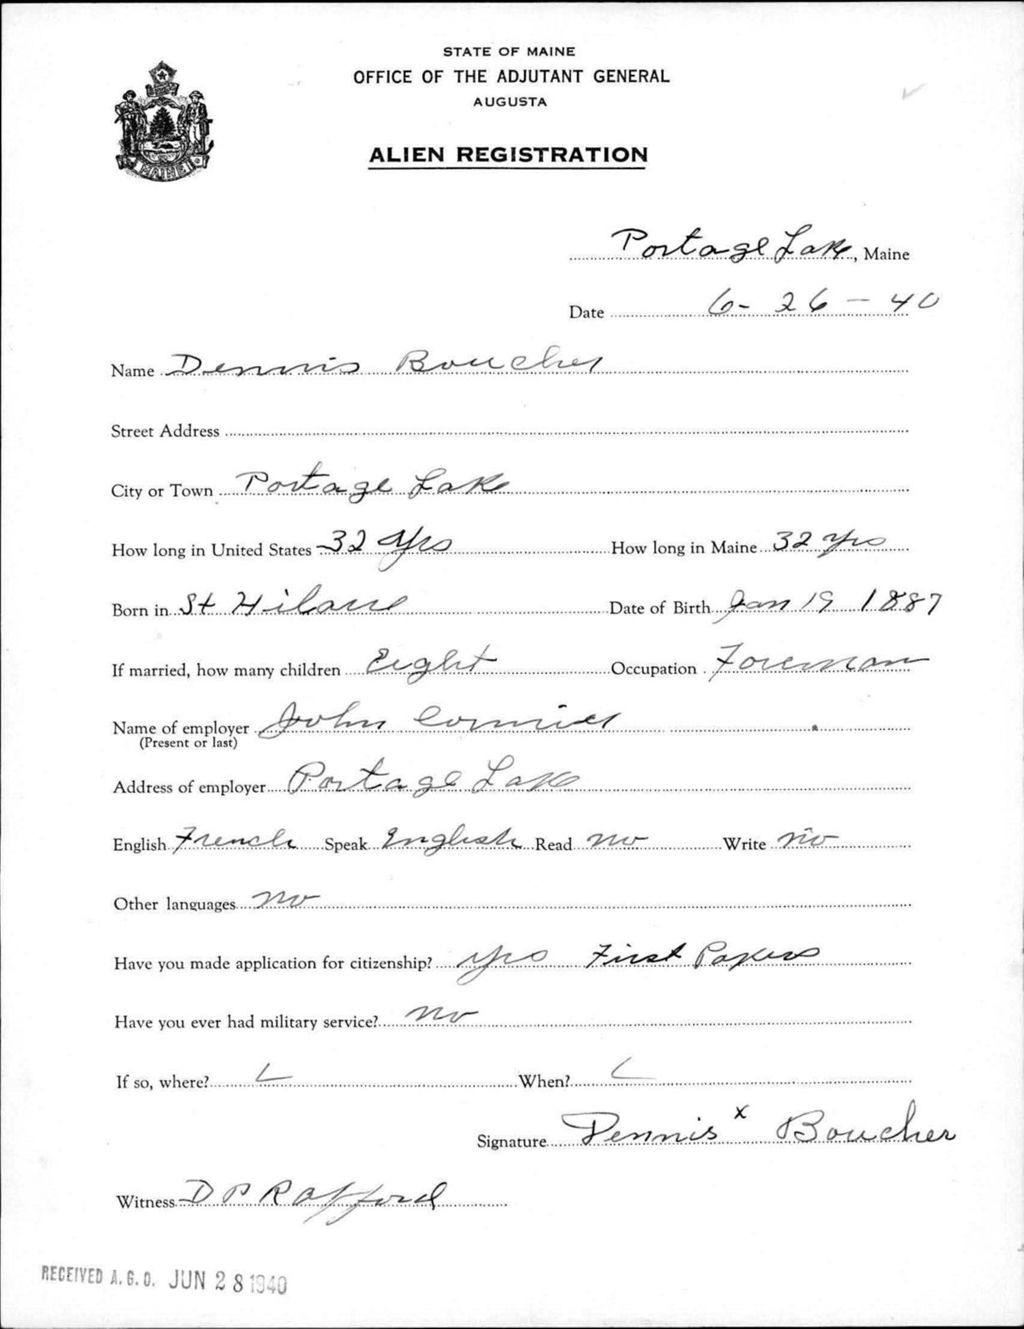 STATE OF MAINE
OFFICE OF THE ADJUTANT GENERAL
AUGUSTA
ALIEN REGISTRATION
MAINE
Portage Lake, Maine
Date 6-26-40
Name Dennis Boucher
Street Address
City or Town Portage Lake
How long in United States 32 Yrs How long in Maine 32 Yrs
Born in St Hilaire Date of Birth Jan 19 1887
If married, how many children Eight Occupation Foreman
Name of employer John Cormier
(Present or last)
Address of employer Portage Lake
English French Speak English Read No Write No
Other languages No
Have you made application for citizenship? Yes First Papers
Have you ever had military service? No
If so, where? When?
Signature Dennis x Boucher
Witness D P Rafford
RECEIVED A.G.O. JUN 28 1940